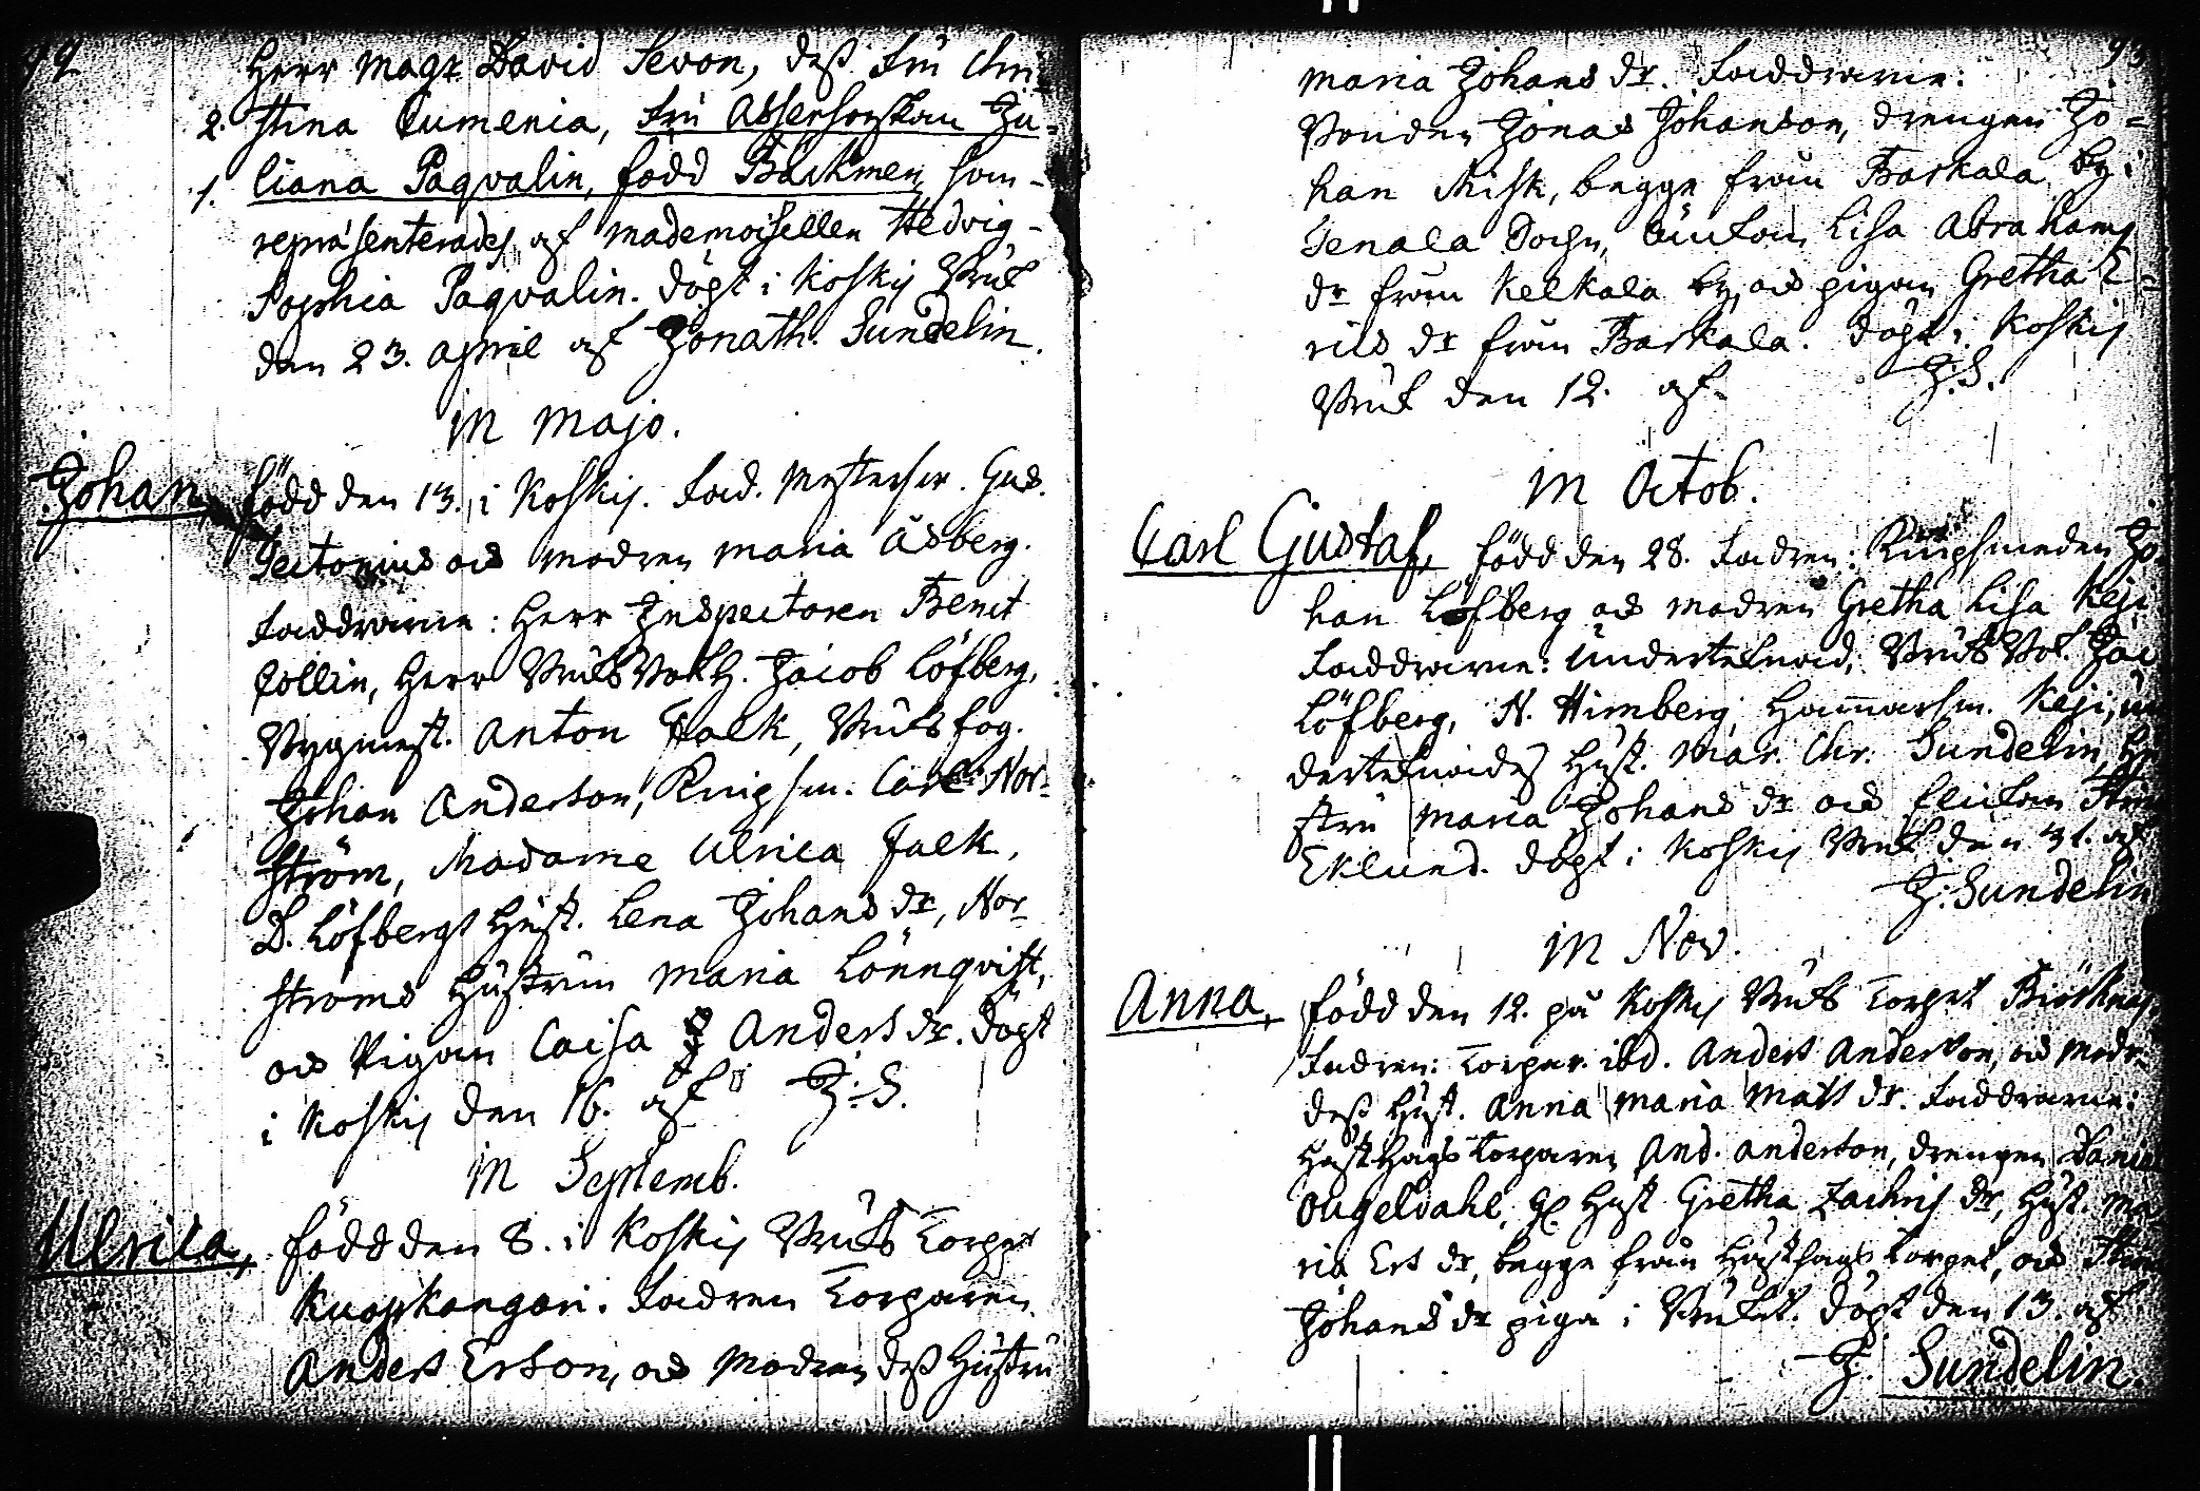 Herr Mag:r David Sevon, dess Fru Chri-
2. stina Cumenia, Fru Assessorskan Ju-
1. liana Paqvalin, född Bäckmen, som
repræsenterades af Mademoisellen Hedvig
Sophia Paqvalin. Döpt i Koskis Bruk
den 23. April af Jonath. Sundelin.
In Majo.
Johan, född den 13. i Koskis. Fad. Mästersv. Gus.
ocs modren Maria Åsberg.
Faddrarne: Herr Inspectoren Benct
Collin, Herr Bruks Bokh. Jacob Löfberg,
Byggmest. Anton Falk, Bruks fog.
Johan Anderson, Knipsm. Carl Nor-
ström, Madame Ulrica Falk,
D. Löfbergs Hust. Lena Johans dr, Nor-
ströms Hustrun Maria Lönnqvist,
ocs Pigan Caisa Anders dr. Döpt
i Koskis den 16. af J. S.
In Septemb.
Ulrica, född den 8. i Koskis Bruks Torpet
Kuopkangari. Fadren Torparen
Anders Erson, ocs Modren dess Hustru
Maria Johans dr. Faddrarne:
Bonden Jonas Johanson, drengen Jo-
han Misk, begge från Baskala by i
Tenala Sochn, Enkan Lisa Abrahams
dr från Kelkala by, ocs pigan Gretha E-
rils dr från Baskala. Döpt i Koskis
Bruk den 12. af J. S.
In Octob.
Carl Gustaf, född den 28. Fadren: Knipsmeden Jo-
han Löfberg ocs modren Gretha Lisa Keji
Faddrarne: Underteknad, Bruks Bok. Jac
Löfberg, N. Himberg, Hammarsm. Keji, un
derteknades Hust. Mar. Chr. Sundelin, Hu
stru Maria Johans dr ocs Enkan Stin
Eklund. Döpt i Koskis Bruk den 31. af
J. Sundelin
In Nov.
Anna, född den 12. på Koskis Bruks Torpet Biörknäs.
Fadren: Torpar. ibd. Anders Anderson, ocs Modr-
dess Hust. Anna Maria Matts dr. Faddrarne:
Hästhags Torparen And. Anderson, drengen Daniel
Hust Gretha Zachris dr, Hust. Ma
ria Ers dr, begge från Hästhags Torpet, ocs Stina
Johans dr piga i Bruket. Döpt den 13. af
J. Sundelin.